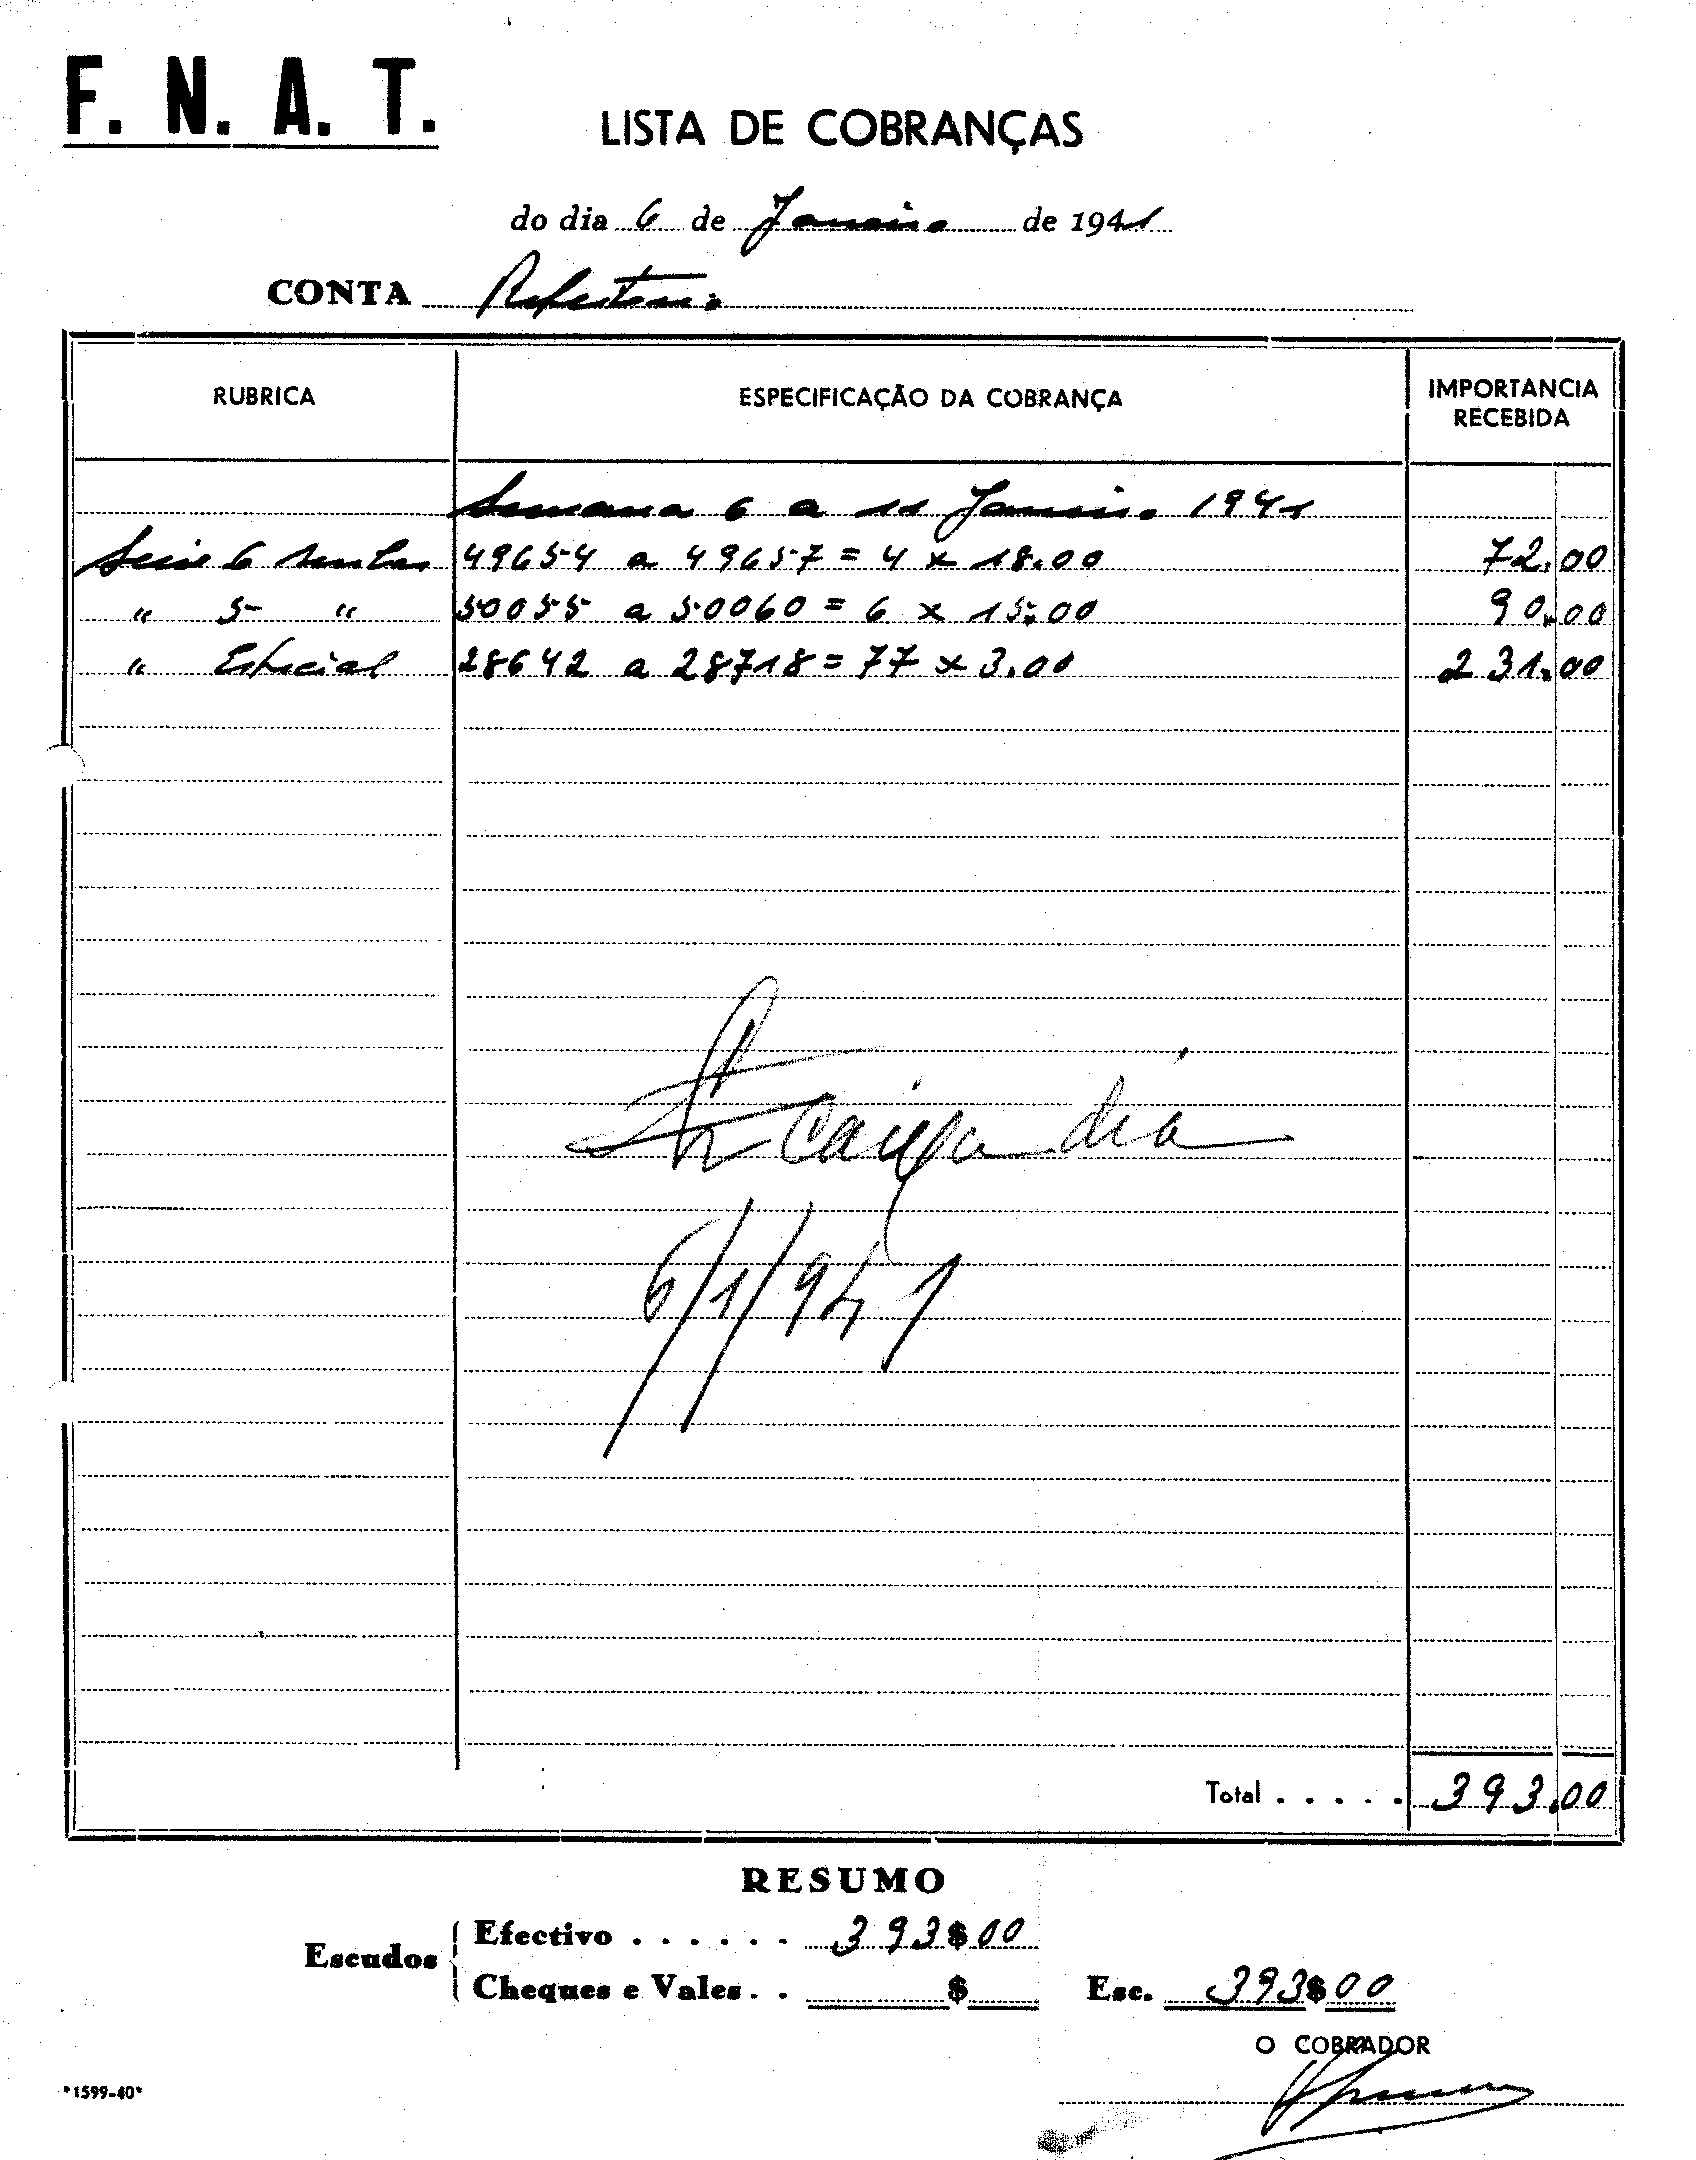 F. N. A. T.
LISTA DE COBRANÇAS
do dia 6 de Janeiro de 1941
CONTA Refeitorio
RUBRICA ESPECIFICAÇÃO DA COBRANÇA IMPORTANCIA RECEBIDA
Semana 6 a 11 Janeiro 1941
Serie 6 senhas 49654 a 49657 = 4 x 18.00 72.00
" 5 " 50055 a 50060 = 6 x 15.00 90.00
" Especial 28642 a 28718 = 77 x 3.00 231.00
caixa dia
6/1/941
Total . . . . . 393.00
RESUMO
Escudos
Efectivo . . . . . . 393$00
Cheques e Vales . . $ Esc. 393$00
O COBRADOR
*1599-40*